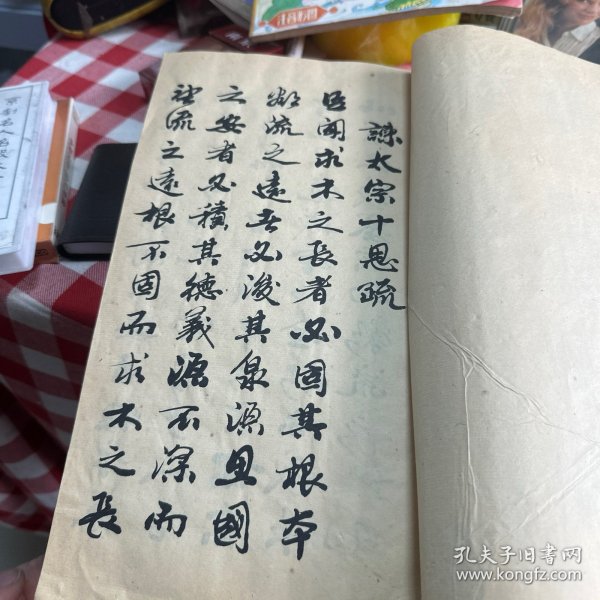 諫太宗十思疏
臣聞求木之長者必固其根本
欲流之遠者必浚其泉源思國
之安者必積其德義源不深而
望流之遠根不固而求木之長
孔夫子旧书网
www.kongfz.com